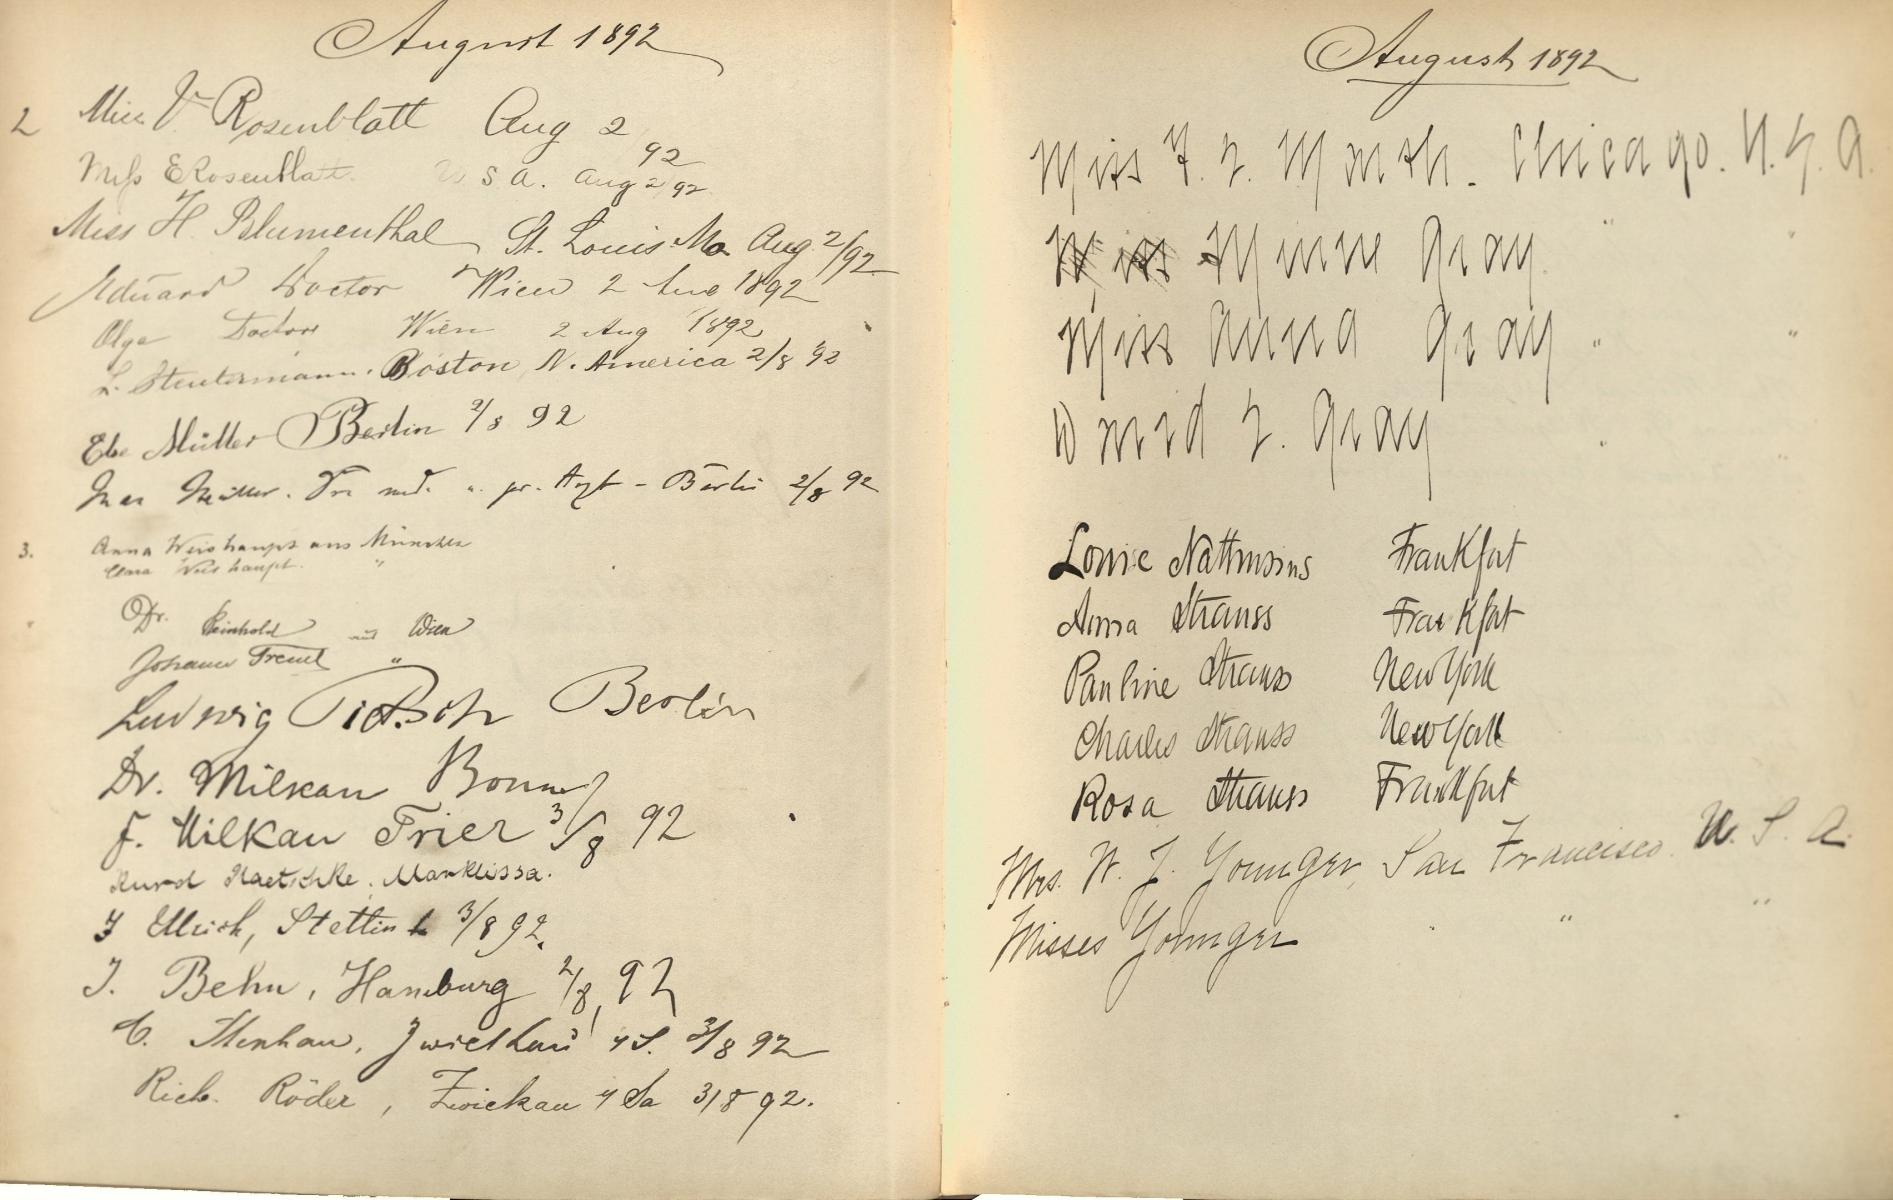 August 1892
2 Miss V. Rosenblatt Aug 2 92
Miss E Rosenblatt. U S A. Aug 2/92.
Miss H. Blumenthal St. Louis Mo Aug. 2/92
Eduard Doctor Wien 2 Aug 1892
Olga Doctor Wien 2 Aug 1892
L. Boston, N. America 2/8 92
Müller Berlin 2/8 92
Müller. Dr med. u. pr. Arzt - Berlin 2/8 92
3. Anna Weishaupt aus München
Clara Weishaupt. "
Dr. Reinhold aus Wien
Johann "
Ludwig Pietsch Berlin
Dr. Milkau Bonn
F. Milkau Trier 3/8 92
Kurd Marklissa.
Stettin 3/8 92.
J. Behn, Hamburg 2/8, 92
C. Zwickau i/S. 3/8 92
Rich. Röder, Zwickau i/Sa 3/8 92.
August 1892
Miss Chicago. U. S. A.
Minne Gray " "
Miss Anna Gray " "
David L. Gray
Louise Nathusius Frankfurt
Anna Strauss Frankfurt
Pauline Strauss New York
Charles Strauss New York
Rosa Strauss Frankfurt
Mrs. W. J. Younger, San Francisco. U. S. A.
Misses Younger " "